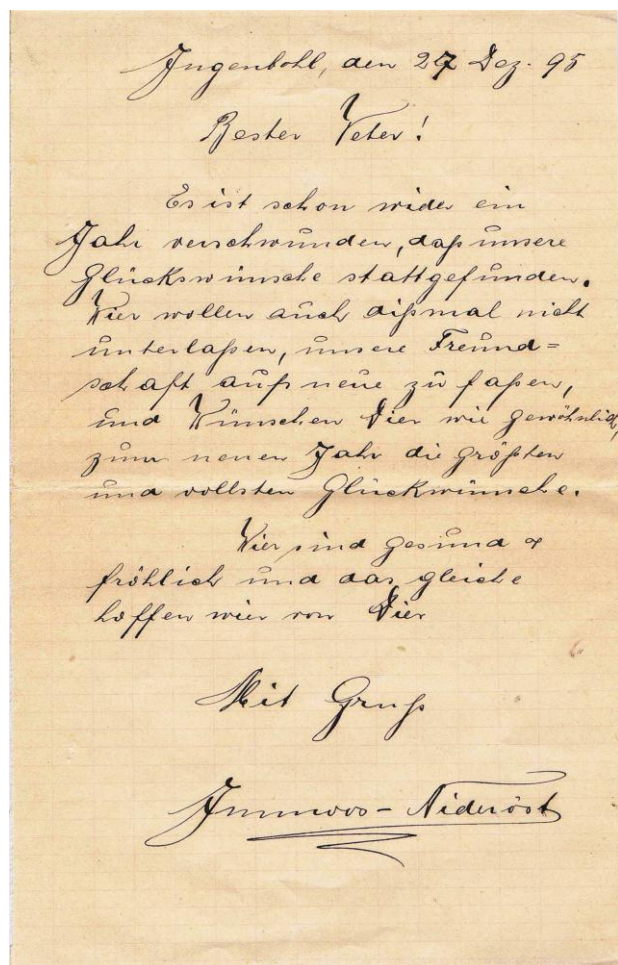 Ingenbohl, den 27 Dez. 95
Bester Veter!
Es ist schon wider ein
Jahr verschwunden, daß unsere
Glückswünsche stattgefunden.
Wier wollen auch dißmal nicht
unterlaßen, unsere Freund=
schaft aufs neue zu faßen,
und Wünschen Dier wie gewöhnlich,
zum neuen Jahr die größten
und vollsten Glückwünsche.
Wier sind gesund &
fröhlich und das gleiche
hoffen wier von Dier
Mit Gruß
Immoos-Nideröst